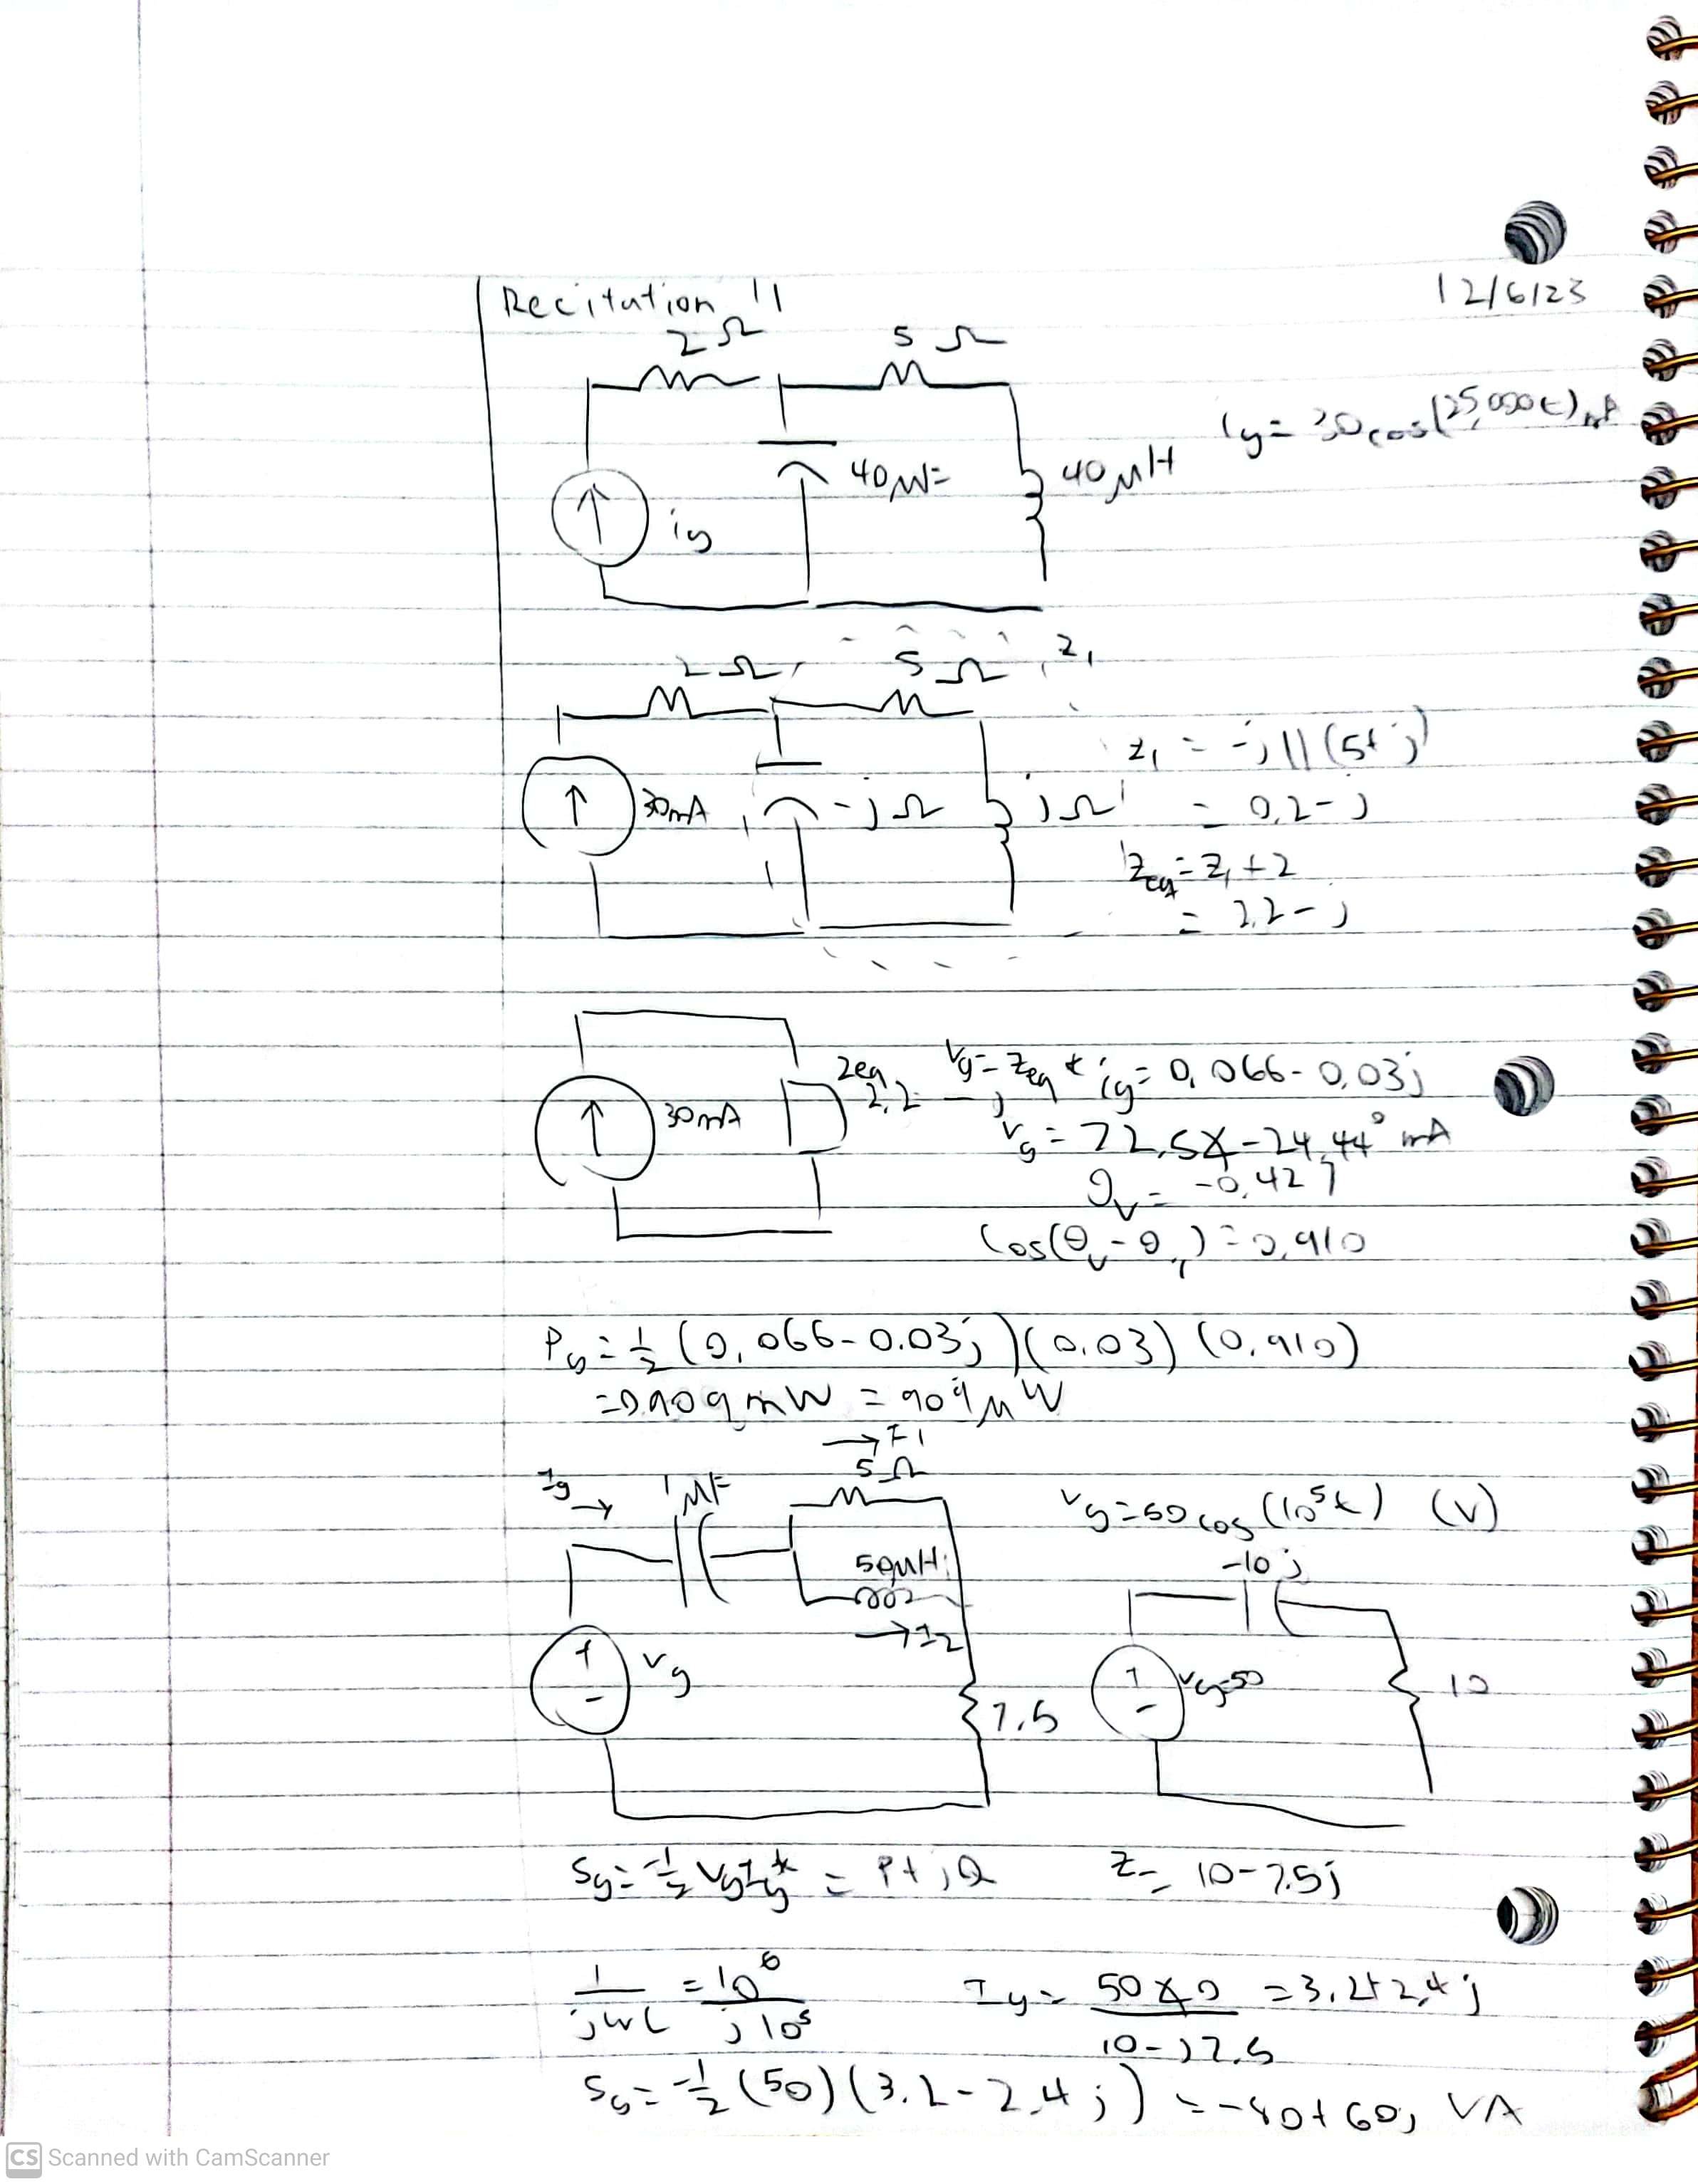 Recitation 11
12/6/23
2 Ω
5 Ω
ig = 30 cos(25,000t) mA
40 μF
40 μH
ig
2 Ω
5 Ω
z1
z1 = -j || (5+j)
30mA
-j Ω
j Ω
= 0.2-j
Zeq = z1 + 2
= 2.2-j
30mA
Zeq
2.2-j
Vg = Zeq * ig = 0.066-0.03j
Vg = 72.5∡-24.44° mA
θv = -0.427
cos(θv-θi) = 0.910
Pg = 1/2 (0.066-0.03j)(0.03)(0.910)
=0.909mW = 909μW
→ I1
5 Ω
Ig →
1 μF
Vg = 50 cos(10^5t) (V)
-10j
50μH
→ I2
+
-
Vg
7.5
+
-
Vg=50
10
Sg = -1/2 Vg Ig* = P+jQ
Z = 10-7.5j
1/jwC = 10^6/j10^5
Ig = 50∡0/10-j7.5 = 3.2+2.4j
Sg = -1/2 (50)(3.2-2.4j) = -80+60j VA
CS Scanned with CamScanner